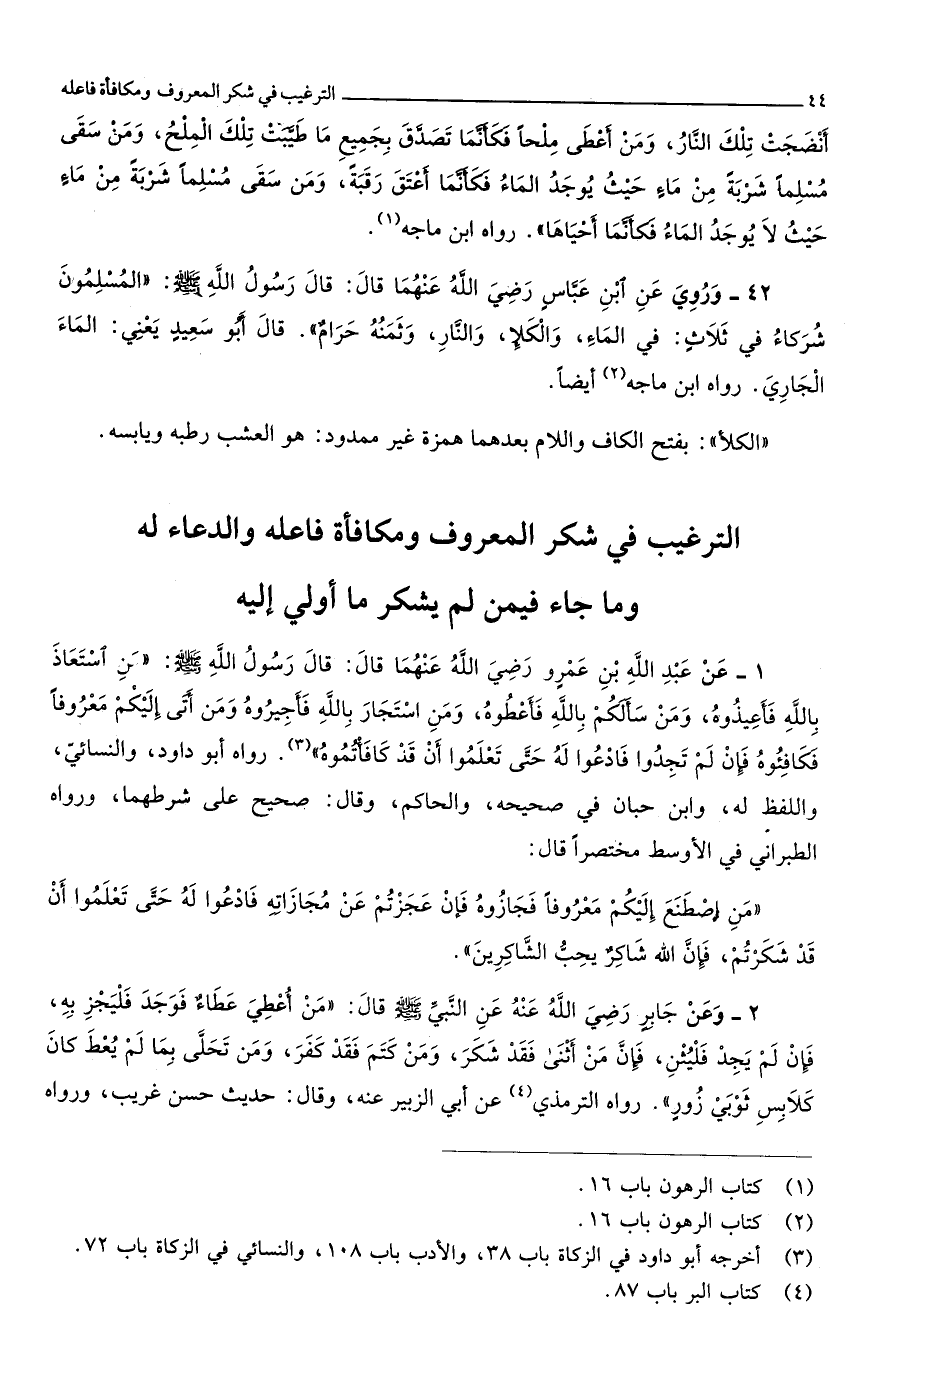 ٤٤ ــــــ الترغيب في شكر المعروف ومكافأة فاعله
أَنْضَجَتْ تِلْكَ النَّارُ، وَمَنْ أَعْطَى مِلْحاً فَكَأَنَّمَا تَصَدَّقَ بِجَمِيعِ مَا طَيَّبَتْ تِلْكَ الْمِلْحُ، وَمَنْ سَقَى
مُسْلِماً شَرْبَةً مِنْ مَاءٍ حَيْثُ يُوجَدُ المَاءُ فَكَأَنَّمَا أَعْتَقَ رَقَبَةً، وَمَن سَقَى مُسْلِماً شَرْبَةً مِنْ مَاءٍ
حَيْثُ لاَ يُوجَدُ المَاءُ فَكَأَنَّمَا أَحْيَاهَا». رواه ابن ماجه(١).
٤٢ ـ وَرُوِيَ عَنِ ٱبْنِ عَبَّاسٍ رَضِيَ اللَّهُ عَنْهُمَا قالَ: قالَ رَسُولُ اللَّهِ ﷺ: «المُسْلِمُونَ
شُرَكاءُ في ثَلَاثٍ: في المَاءِ، وَالْكَلإِ، وَالنَّارِ، وَثَمَنُهُ حَرَامٌ». قالَ أَبُو سَعِيدٍ يَعْنِي: المَاءَ
الْجَارِيَ. رواه ابن ماجه(٢) أيضاً.
«الكلأ»: بفتح الكاف واللام بعدهما همزة غير ممدود: هو العشب رطبه ويابسه.
الترغيب في شكر المعروف ومكافأة فاعله والدعاء له
وما جاء فيمن لم يشكر ما أولي إليه
١ ـ عَنْ عَبْدِ اللَّهِ بْنِ عَمْرٍو رَضِيَ اللَّهُ عَنْهُمَا قالَ: قالَ رَسُولُ اللَّهِ ﷺ: «مَنِ ٱسْتَعَاذَ
بِاللَّهِ فَأَعِيذُوهُ، وَمَنْ سَأَلَكُمْ بِاللَّهِ فَأَعْطُوهُ، وَمَنِ اسْتَجَارَ بِاللَّهِ فَأَجِيرُوهُ وَمَن أَتَى إِلَيْكُمْ مَعْرُوفاً
فَكَافِئُوهُ فَإِنْ لَمْ تَجِدُوا فَادْعُوا لَهُ حَتَّى تَعْلَمُوا أَنْ قَدْ كَافَأْتُمُوهُ»(٣). رواه أبو داود، والنسائيّ،
واللفظ له، وابن حبان في صحيحه، والحاكم، وقال: صحيح على شرطهما، ورواه
الطبراني في الأوسط مختصراً قال:
«مَنِ اصْطَنَعَ إِلَيْكُمْ مَعْرُوفاً فَجَازُوهُ فَإِنْ عَجَزْتُمْ عَنْ مُجَازَاتِهِ فَادْعُوا لَهُ حَتَّى تَعْلَمُوا أَنْ
قَدْ شَكَرْتُمْ، فَإِنَّ الله شَاكِرٌ يحِبُّ الشَّاكِرِينَ».
٢ ـ وَعَنْ جَابِرٍ رَضِيَ اللَّهُ عَنْهُ عَنِ النَّبِيِّ ﷺ قالَ: «مَنْ أُعْطِيَ عَطَاءً فَوَجَدَ فَلْيَجْزِ بِهِ،
فَإِنْ لَمْ يَجِدْ فَلْيُثْنِ، فَإِنَّ مَنْ أَثْنَىٰ فَقَدْ شَكَرَ، وَمَنْ كَتَمَ فَقَدْ كَفَرَ، وَمَن تَحَلَّى بِمَا لَمْ يُعْطَ كانَ
كَلَابِسِ ثَوْبَيْ زُورٍ». رواه الترمذي(٤) عن أبي الزبير عنه، وقال: حديث حسن غريب، ورواه
(١) كتاب الرهون باب ١٦.
(٢) كتاب الرهون باب ١٦.
(٣) أخرجه أبو داود في الزكاة باب ٣٨، والأدب باب ١٠٨، والنسائي في الزكاة باب ٧٢.
(٤) كتاب البر باب ٨٧.